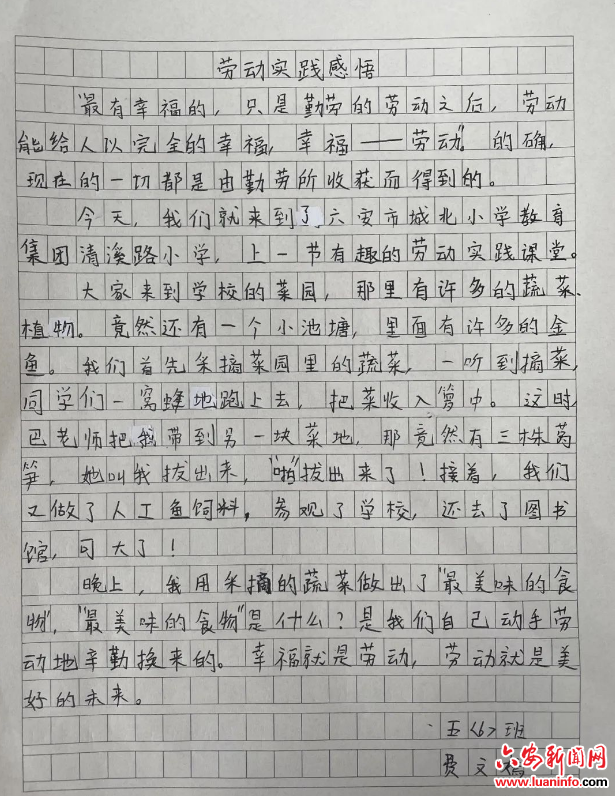 劳动实践感悟
"最有幸福的，只是勤劳的劳动之后，劳动
能给人以完全的幸福，幸福——劳动"。的确，
现在的一切都是由勤劳所收获而得到的。
今天，我们就来到了六安市城北小学教育
集团清溪路小学，上一节有趣的劳动实践课堂。
大家来到学校的菜园，那里有许多的蔬菜、
植物。竟然还有一个小池塘，里面有许多的金
鱼。我们首先采摘菜园里的蔬菜，一听到摘菜，
同学们一窝蜂地跑上去，把菜收入箩中。这时，
巴老师把我带到另一块菜地，那竟然有三株莴
笋，她叫我拔出来，"啪"拔出来了！接着，我们
又做了人工鱼饲料，参观了学校，还去了图书
馆，可大了！
晚上，我用采摘的蔬菜做出了"最美味的食
物"，"最美味的食物"是什么？是我们自己动手劳
动地辛勤换来的。幸福就是劳动，劳动就是美
好的未来。
五<6>班
费文
六安新闻网
www.luaninfo.com